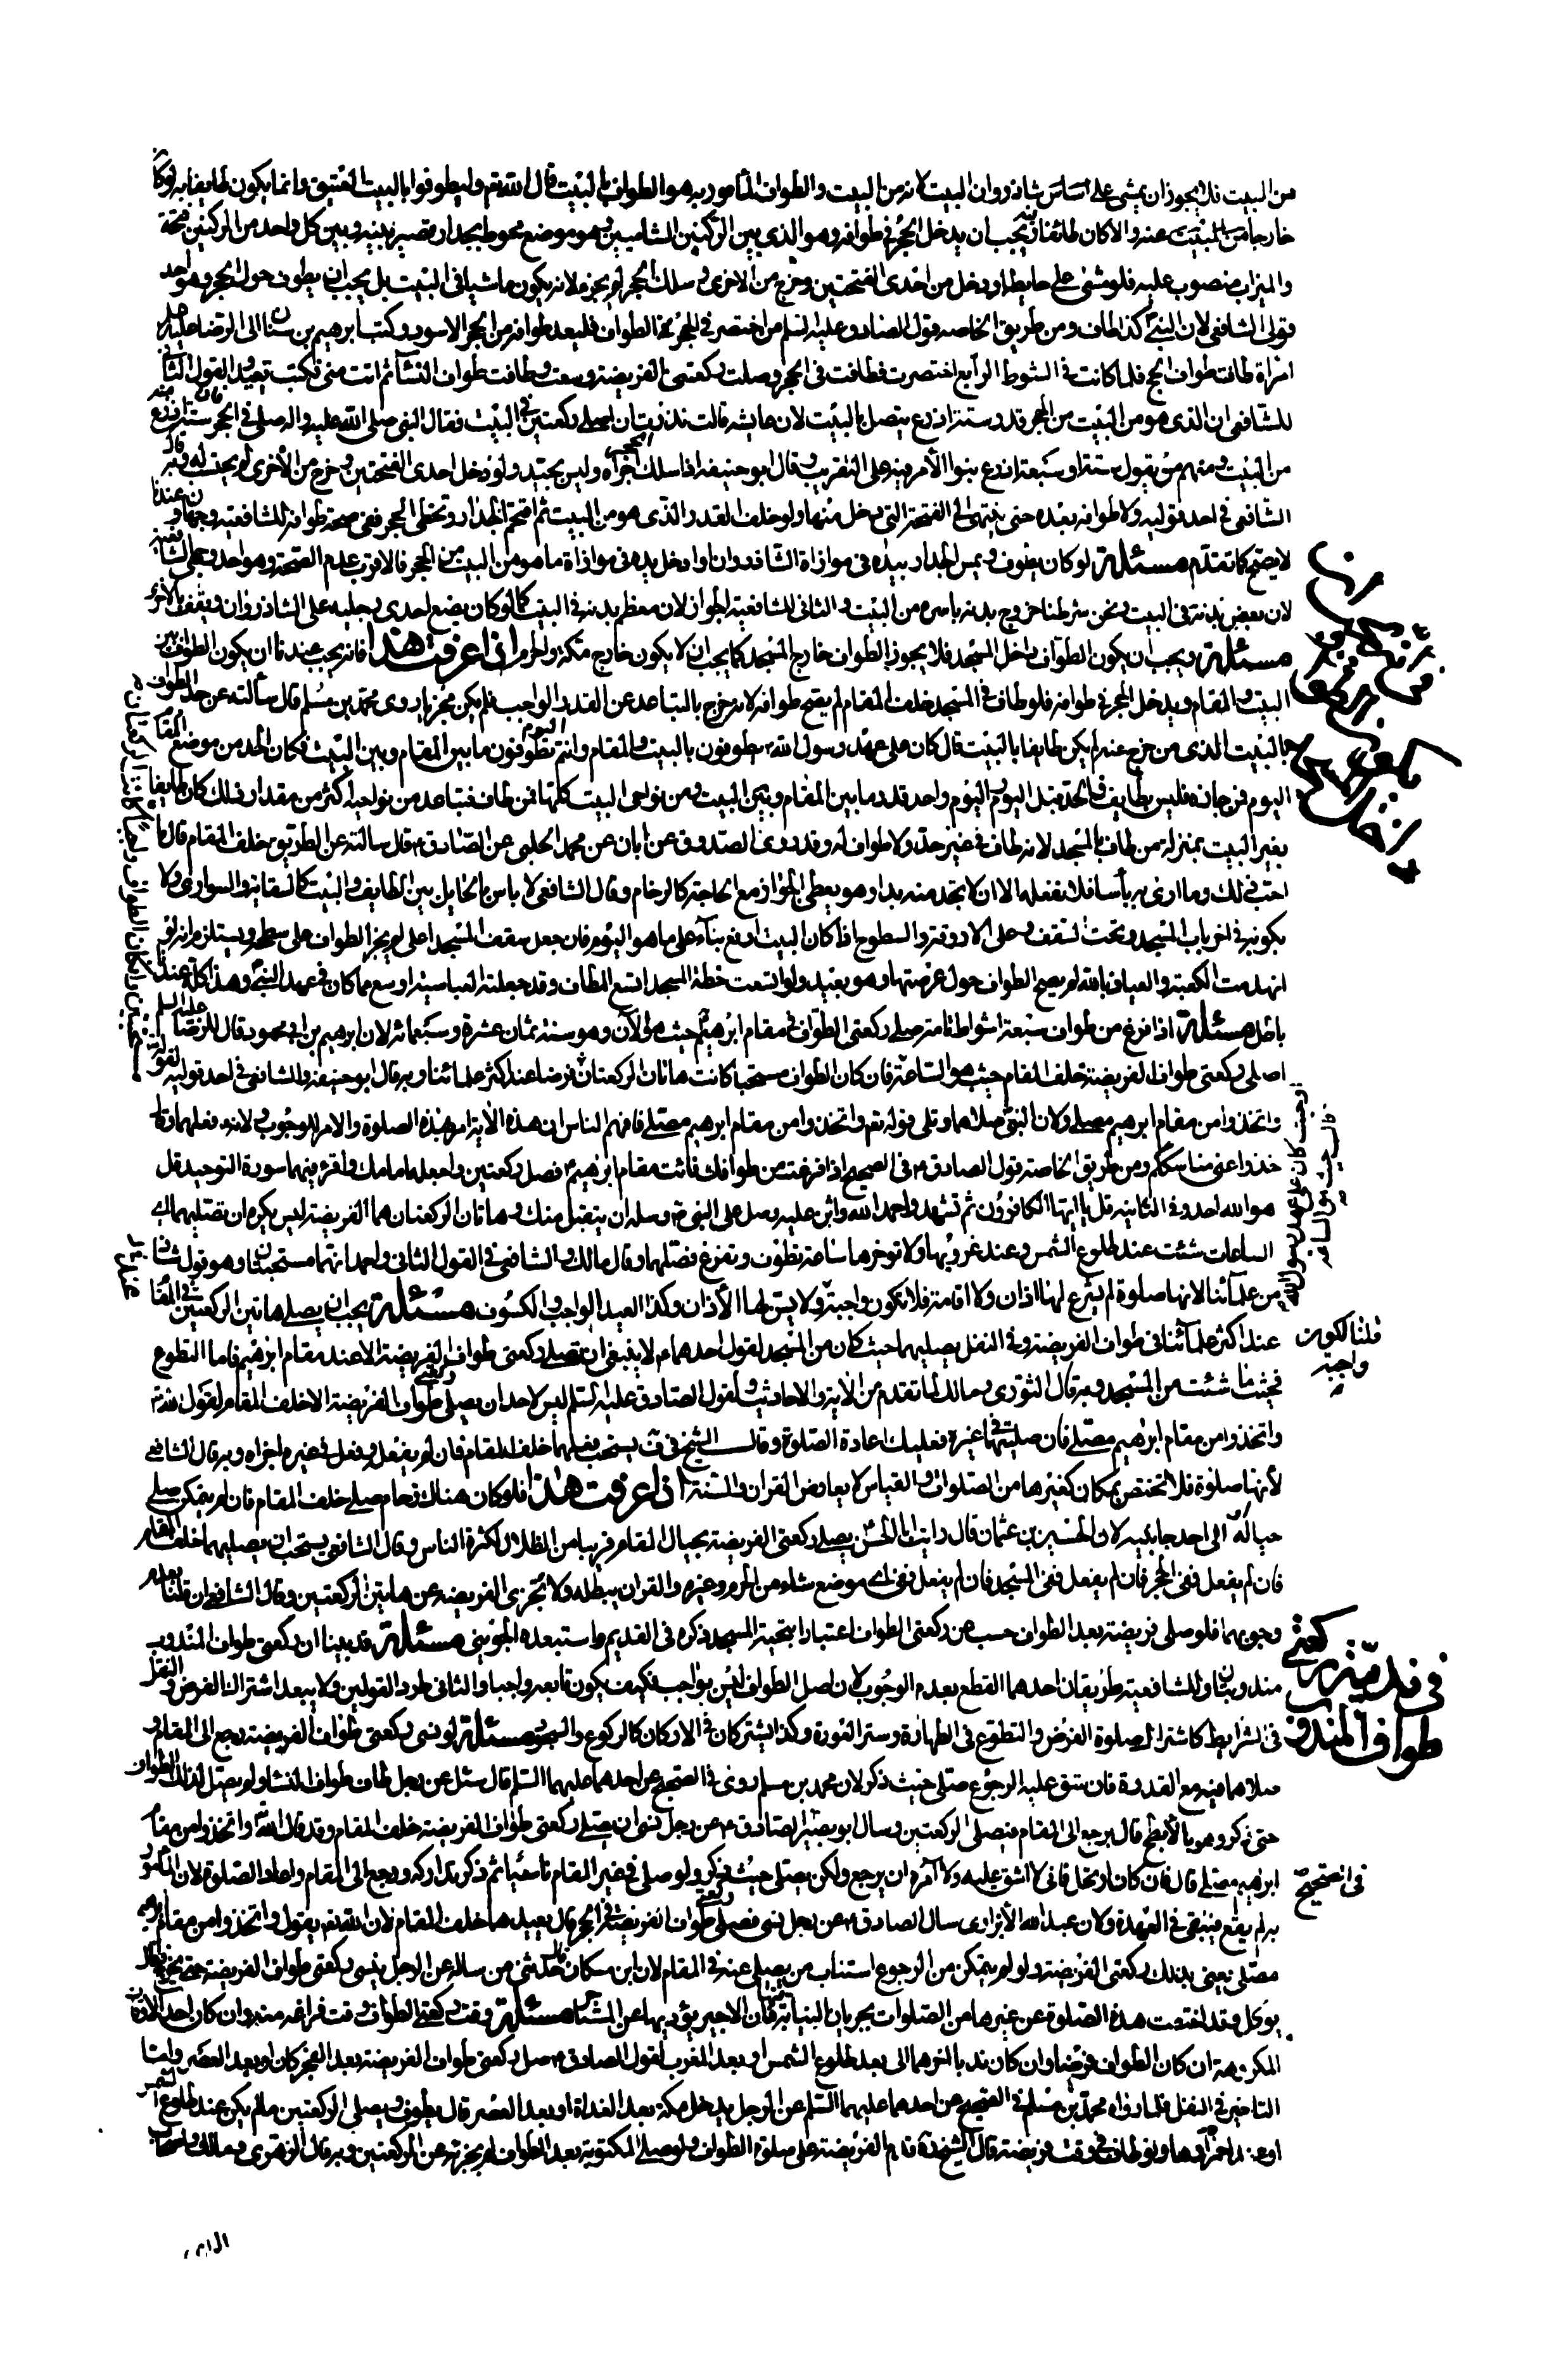 من البيت فلا يجوز ان يمشى على اساس شاذروان البيت لانه من البيت والطواف المأمور به هو الطواف بالبيت قال الله تع وليطوفوا بالبيت العتيق وانما يكون طايفا به لو كان
خارجا من البيت عنه والا كان طائفا فيه يجب ان يدخل الحجر فى طوافه وهو الذى بين الركنين الشاميين وهو موضع محوط بجدار قصير بينه وبين كل واحد من الركنين فتحة
والميزاب منصوب عليه فلو مشى على حايطه او دخل من احدى الفتحتين وخرج من الاخرى وسلك الحجر لم يجزه لانه يكون ماشيا فى البيت بل يجب ان يطوف حول الحجر وهو احد
قولى الشافعى لان النبى كذا طاف ومن طريق الخاصه قول الصادق عليه السلم من اختصر فى الحجر فى الطواف فليعد طوافه من الحجر الاسود وكتب ابرهيم بن سنان الى الرضا عليه
امراة طافت طواف الحج فلما كانت فى الشوط الرابع اختصرت فطافت فى الحجر وصلت ركعتى الفريضة وسعت وطافت طواف النسآء ثم اتت منى فكتب تعيد القول الثانى
للشافعى ان الذى هو من البيت من الحجر قدر ستة اذرع يتصل بالبيت لان عايشه قالت نذرت ان اصلى ركعتين فى البيت فقال النبى صلى الله عليه واله صلى فى الحجر فان ستة اذرع منه
من البيت ومنهم من يقول ستة او سبعة اذرع بنوا الأمر فيه على التقريب وقال ابو حنيفه اذا سلك الحجر اجزاه وليس بجيد ولو دخل احدى الفتحتين وخرج من الأخرى لم يحتسب له وبه قال
الشافعى فى احد قوليه ولا طوافه بعده حتى ينتهى الى الفتحة التى دخل منها ولو خلف القدر الذى هو من البيت ثم اقتحم الجدار وتخطى الحجر ففى صحة طوافه للشافعيه وجهان وعندنا
لا يصح كما تقدم مسئلة لو كان يطوف ويمس الجدار بيده فى موازاة الشاذروان او ادخل يده فى موازاة ما هو من البيت من الحجر فالاقرب عدم الصحة وهو احد وجهى الشافعيه
لان بعض بدنه فى البيت ونحن شرطنا خروج بدنه باسره من البيت والثانى للشافعية الجواز لان معظم بدنه فى البيت كما لو كان يضع احدى رجليه على الشاذروان ويقف بالاخرى
مسئلة ويجب ان يكون الطواف داخل المسجد فلا يجوز الطواف خارج المسجد كما يجب ان لا يكون خارج مكة والحرم اذا عرفت هذا فانه يجب عندنا ان يكون الطواف بين
البيت والمقام ويدخل الحجر فى طوافه فلو طاف فى المسجد خلف المقام لم يصح طوافه لانه خرج بالتباعد عن القدر الواجب فلم يكن مجزيا روى محمد بن مسلم قال سألته عن حد الطواف
بالبيت الذى من خرج عنه لم يكن طايفا بالبيت قال كان على عهد رسول الله ص يطوفون بالبيت والمقام وانتم اليوم تطوفون ما بين المقام وبين البيت فكان الحد من موضع المقام
اليوم فمن جازه فليس بطايف فالحد قبل اليوم واليوم واحد قدر ما بين المقام وبين البيت ومن نواحى البيت كلها فمن طاف فتباعد من نواحيه اكثر من مقدار ذلك كان طايفا
بغير البيت بمنزلة من طاف بالمسجد لانه طاف فى غير حد ولا طواف له وقد روى الصدوق عن ابان عن محمد الحلبى عن الصادق ع قال سالته عن الطريق خلف المقام قال ما
احب ذلك وما ارى به بأسا فلا تفعله الا ان لا تجد منه بدا وهو يعطى الجواز مع الحاجة كالزحام وقال الشافعى لا باس بالحايل بين الطايف والبيت كالسقاية والسوارى ولا
بكونه فى اخرباب المسجد وتحت السقف وعلى الاروقة والسطوح اذا كان البيت ارفع بنآء على ما هو اليوم فان جعل سقف المسجد اعلى لم يجز الطواف على سطحه ويستلزم انه لو
انهدمت الكعبة والعياذ بالله لم يصح الطواف حول عرصتها وهو بعيد ولو اتسعت خطة المسجد اتسع المطاف وقد جعلته العباسية اوسع مما كان فى عهد النبى وهذا كله عندنا
باطل مسئلة اذا فرغ من طواف سبعة اشواط تامة صلى ركعتى الطواف فى مقام ابرهيم حيث هو الآن وهو سنة ثمان عشرة وسبعمائة لان ابرهيم بن ابى محمود قال للرضا عليه السلم
اصلى ركعتى طواف الفريضة خلف المقام حيث هو الساعة فان كان الطواف مستحبا كانت هاتان الركعتان فرضا عند اكثر علمائنا وبه قال ابو حنيفه والشافعى فى احد قوليه لقوله
واتخذوا من مقام ابرهيم مصلى وكان النبى ص صلاهما وتلى قوله تع واتخذوا من مقام ابرهيم مصلى فافهم الناس ان هذه الآية امر بهذه الصلوة والامر للوجوب ولانه فعلهما وقال
خذوا عنى مناسككم ومن طريق الخاصة قول الصادق ع فى الصحيح اذا فرغت من طوافك فائت مقام ابرهيم ع فصل ركعتين واجعله امامك واقرء فيهما سورة التوحيد قل
هو الله احد وفى الثانيه قل يا ايها الكافرون ثم تشهد واحمد الله واثن عليه وصل على النبى ص وسله ان يتقبل منك وهاتان الركعتان هما الفريضة ليس يكره ان تصليهما اى
الساعات شئت عند طلوع الشمس وعند غروبها ولا توخرها ساعة تطوف وتفرغ فصلهما وقال مالك والشافعى فى القول الثانى واحمد انهما مستحبتان وهو قول شاذ
من علمآئنا لانها صلوة لم يشرع لها اذان ولا اقامة فلا تكون واجبة ولا يسن لها الأذان وكذا العيد الواجب والكسوف مسئلة يجب ان يصلى هاتين الركعتين فى المقام
عند اكثر علمآئنا فى طواف الفريضة وفى النفل يصليهما حيث كان من المسجد لقول احدهما ع لا ينبغى ان تصلى ركعتى طواف الفريضة الا عند مقام ابرهيم فاما التطوع
فحيث ما شئت من المسجد وبه قال الثورى ومالك لما تقدم من الآية والاحاديث ولقول الصادق عليه السلم ليس لاحد ان يصلى ركعتى طواف الفريضة الا خلف المقام لقول الله تع
واتخذوا من مقام ابرهيم مصلى فان صليتهما فى غيره فعليك اعادة الصلوة وقال الشيخ فى ف يستحب فعلهما خلف المقام فان لم يفعل وفعل فى غيره اجزاه وبه قال الشافعى
لأنها صلوة فلا تختص بمكان كغيرها من الصلوات والقياس لا يعارض القران والسنة اذا عرفت هذا فلو كان هناك زحام صلى خلف المقام فان لم يتمكن صلى
حياله الى احد جانبيه لان الحسين بن عثمان قال رايت ابا الحسن يصلى ركعتى الفريضة بحيال المقام قريبا من الظلال لكثرة الناس وقال الشافعى يستحب ان يصليهما خلف المقام
فان لم يفعل ففى الحجر فان لم يفعل ففى المسجد فان لم يفعل ففى اى موضع شاء من الحرم وغيره والقران يبطله ولا تجزى الفريضه عن هاتين الركعتين وقال الشافعى ان قلنا بعدم
وجوبهما فلو صلى فريضة بعد الطواف حسب عن ركعتى الطواف اعتبارا بتحية المسجد ذكره فى القديم واستبعده الجوينى مسئلة قد بينا ان ركعتى طواف المندوب
مندوبتان وللشافعية طريقان احدهما القطع بعدم الوجوب لان اصل الطواف ليس بواجب فكيف يكون تابعه واجبا والثانى طرد القولين ولا يبعد اشتراك الفرض والنفل
فى الشرايط كاشتراك صلوة الفرض والتطوع فى الطهارة وستر العورة وكذا يشتركان فى الاركان كالركوع والسجود مسئلة لو نسى ركعتى طواف الفريضة رجع الى المقام و
صلاهما فيه مع القدرة فان شق عليه الرجوع صلى حيث ذكر لان محمد بن مسلم روى فى الصحيح عن احدهما عليهما السلم قال سئل عن رجل طاف طواف النسآء ولم يصل لذلك الطواف
حتى ذكر وهو بالأبطح قال يرجع الى المقام فيصلى الركعتين وسال ابو بصير الصادق ع عن رجل نسى ان يصلى ركعتى طواف الفريضة خلف المقام وقد قال الله واتخذوا من مقام
ابراهيم مصلى قال فان كان ارتحل فانى لا اشق عليه ولا آمره ان يرجع ولكن يصلى حيث يذكر ولو صلى فى غير المقام ناسيا ثم ذكر تداركه ورجع الى المقام واعاد الصلوة لان المأمور
به لم يقع فيبقى فى العهدة ولان عبد الله الأبزارى سال الصادق ع عن رجل نسى فصلى ركعتى طواف الفريضة فى الحجر قال يعيدهما خلف المقام لان الله تع يقول واتخذوا من مقام ابرهيم
مصلى يعنى بذلك ركعتى الفريضة ولو لم يتمكن من الرجوع استناب من يصلى عنه فى المقام لان ابن مسكان قال حدثنى من ساله عن الرجل ينسى ركعتى طواف الفريضة حتى يخرج قال
يوكل وقد اختصت هذه الصلوة عن غيرها من الصلوات بجريان النيابة فيها فان الاجير يؤديها عن المستأجر مسئلة وقت ركعتى الطواف وقت فراغه منه وان كان احد الاوقات
المكروهة ان كان الطواف فرضا وان كان ندبا اخرهما الى بعد طلوع الشمس او بعد المغرب لقول الصادق ع صل ركعتى طواف الفريضة بعد الفجر كان او بعد العصر واما
التاخير فى النفل فلما رواه محمد بن مسلم فى الصحيح عن احدهما عليهما السلم عن الرجل يدخل مكة بعد الغداة او بعد العصر قال يطوف ويصلى الركعتين ما لم يكن عند طلوع الشمس
او عند احمرارها ولو طاف فى وقت فريضة قال الشيخ ره قدم الفريضة على صلوة الطواف ولو صلى المكتوبة بعد الطواف لم يجزئه عن الركعتين وبه قال الزهرى ومالك واصحاب
قلنا لكونه
واجبه
فى قدر ركعتى
طواف المندوب
فى الصحيح
الراى